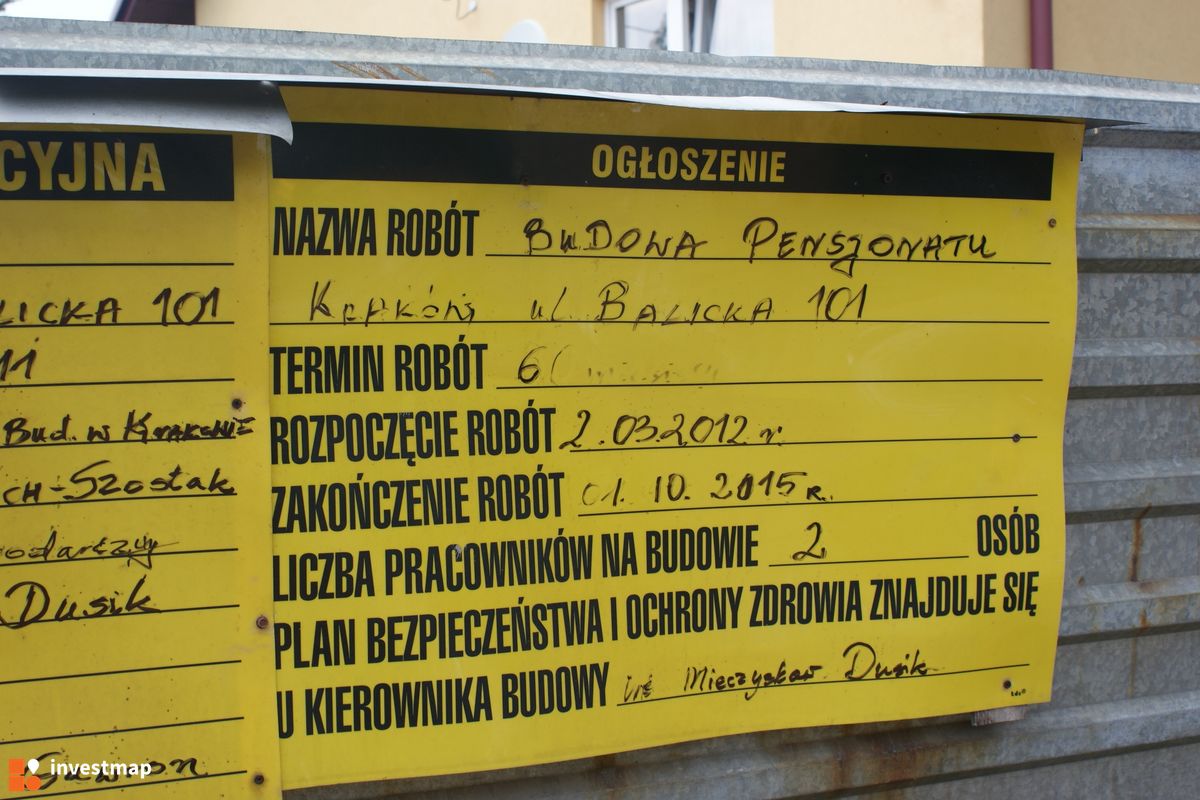 CYJNA
LICKA 101
11
Bud. w Krakowie
CH-Szostak
Dusik
OGŁOSZENIE
NAZWA ROBÓT BUDOWA PENSJONATU
KRAKÓW ul. BALICKA 101
TERMIN ROBÓT
ROZPOCZĘCIE ROBÓT 2.03.2012 r.
ZAKOŃCZENIE ROBÓT 01.10.2015 R.
LICZBA PRACOWNIKÓW NA BUDOWIE 2 OSÓB
PLAN BEZPIECZEŃSTWA I OCHRONY ZDROWIA ZNAJDUJE SIĘ
U KIEROWNIKA BUDOWY inż Mieczysław Dusik
investmap